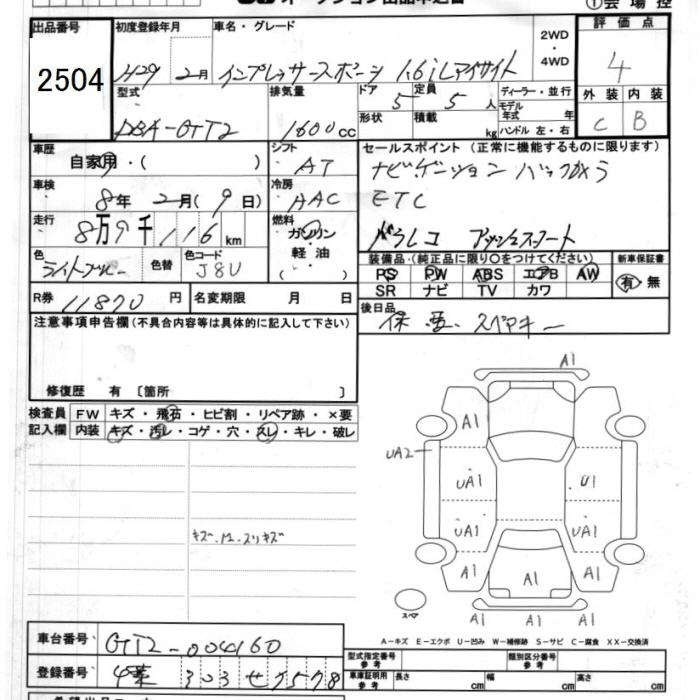 出品番号 初度登録年月 車名・グレード 2WD・4WD 評価点
2504 H29 2月 インプレッサスポーツ 1.6iLアイサイト 4
型式 排気量 ドア 定員 ディーラー・並行 外装 内装
DBA-GT2 1600cc 5 5人 モデル年式 年 C B
形状 積載 kg ハンドル 左・右
車歴 シフト セールスポイント (正常に機能するものに限ります)
自家用・( ) AT ナビゲーション バックカメラ
車検 冷房 ETC
8年 2月(9日) AAC
走行 燃料 ドラレコ
8万9千116km ガソリン
軽油
( )
色 色替 色コード 装備品(純正品に限り○をつけてください) 新車保証書
ライトブルー J8U PS PW ABS エアB AW 有 無
SR ナビ TV カワ
R券 11870円 名変期限 月 日 後日品
注意事項申告欄(不具合内容等は具体的に記入して下さい) 保、取、スペアキー
修復歴 有 〔箇所 〕
検査員 FW キズ・飛石・ヒビ割・リペア跡・×要
記入欄 内装 キズ・汚レ・コゲ・穴・スレ・キレ・破レ
A1
A1
UA2
UA1 U1
UA1 UA1
A1 A1 A1
A1 A1 A1
スペア
A-キズ E-エクボ U-凹み W-補修跡 S-サビ C-腐食 XX-交換済
車台番号 GT2-004160
登録番号 303 せ 7578
型式指定番号 参考 類別区分番号 参考
車庫証明用 参考 長さ cm 幅 cm 高さ cm